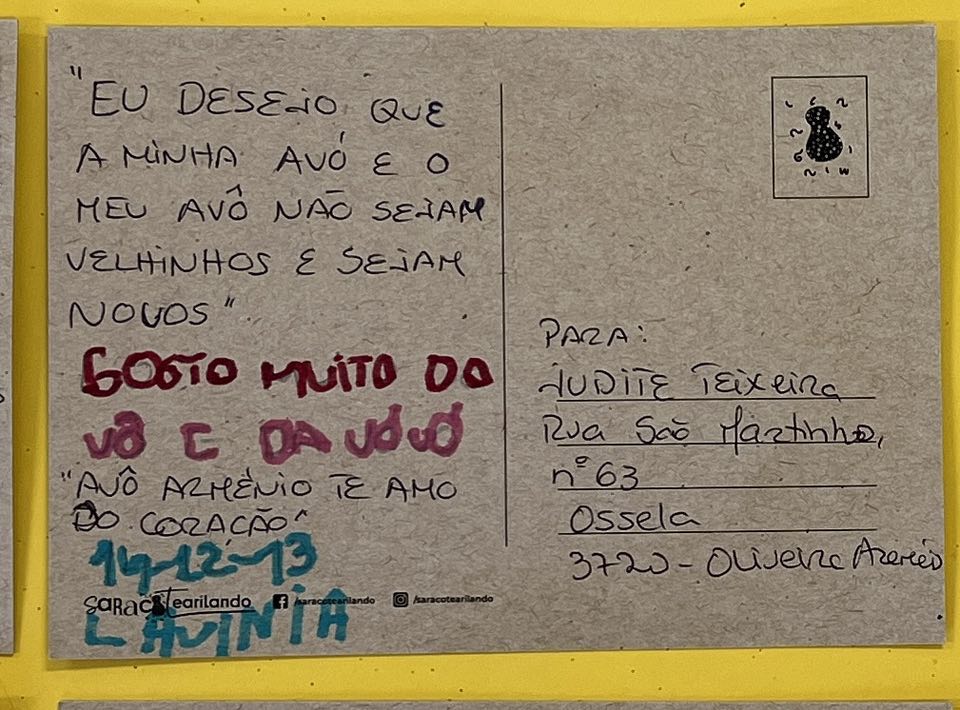 "EU DESEJO QUE
A MINHA AVÓ E O
MEU AVÔ NÃO SEJAM
VELHINHOS E SEJAM
NOVOS"
GOSTO MUITO DO
VÔ E DA VÓVÓ
"AVÔ ARMÉNIO TE AMO
DO CORAÇÃO"
14-12-13
saracoTearilando /saracotearilando /saracotearilando
LAVINIA
PARA:
JUDITE Teixeira
Rua São Martinho,
nº 63
Ossela
3720 - Oliveira Azeméis